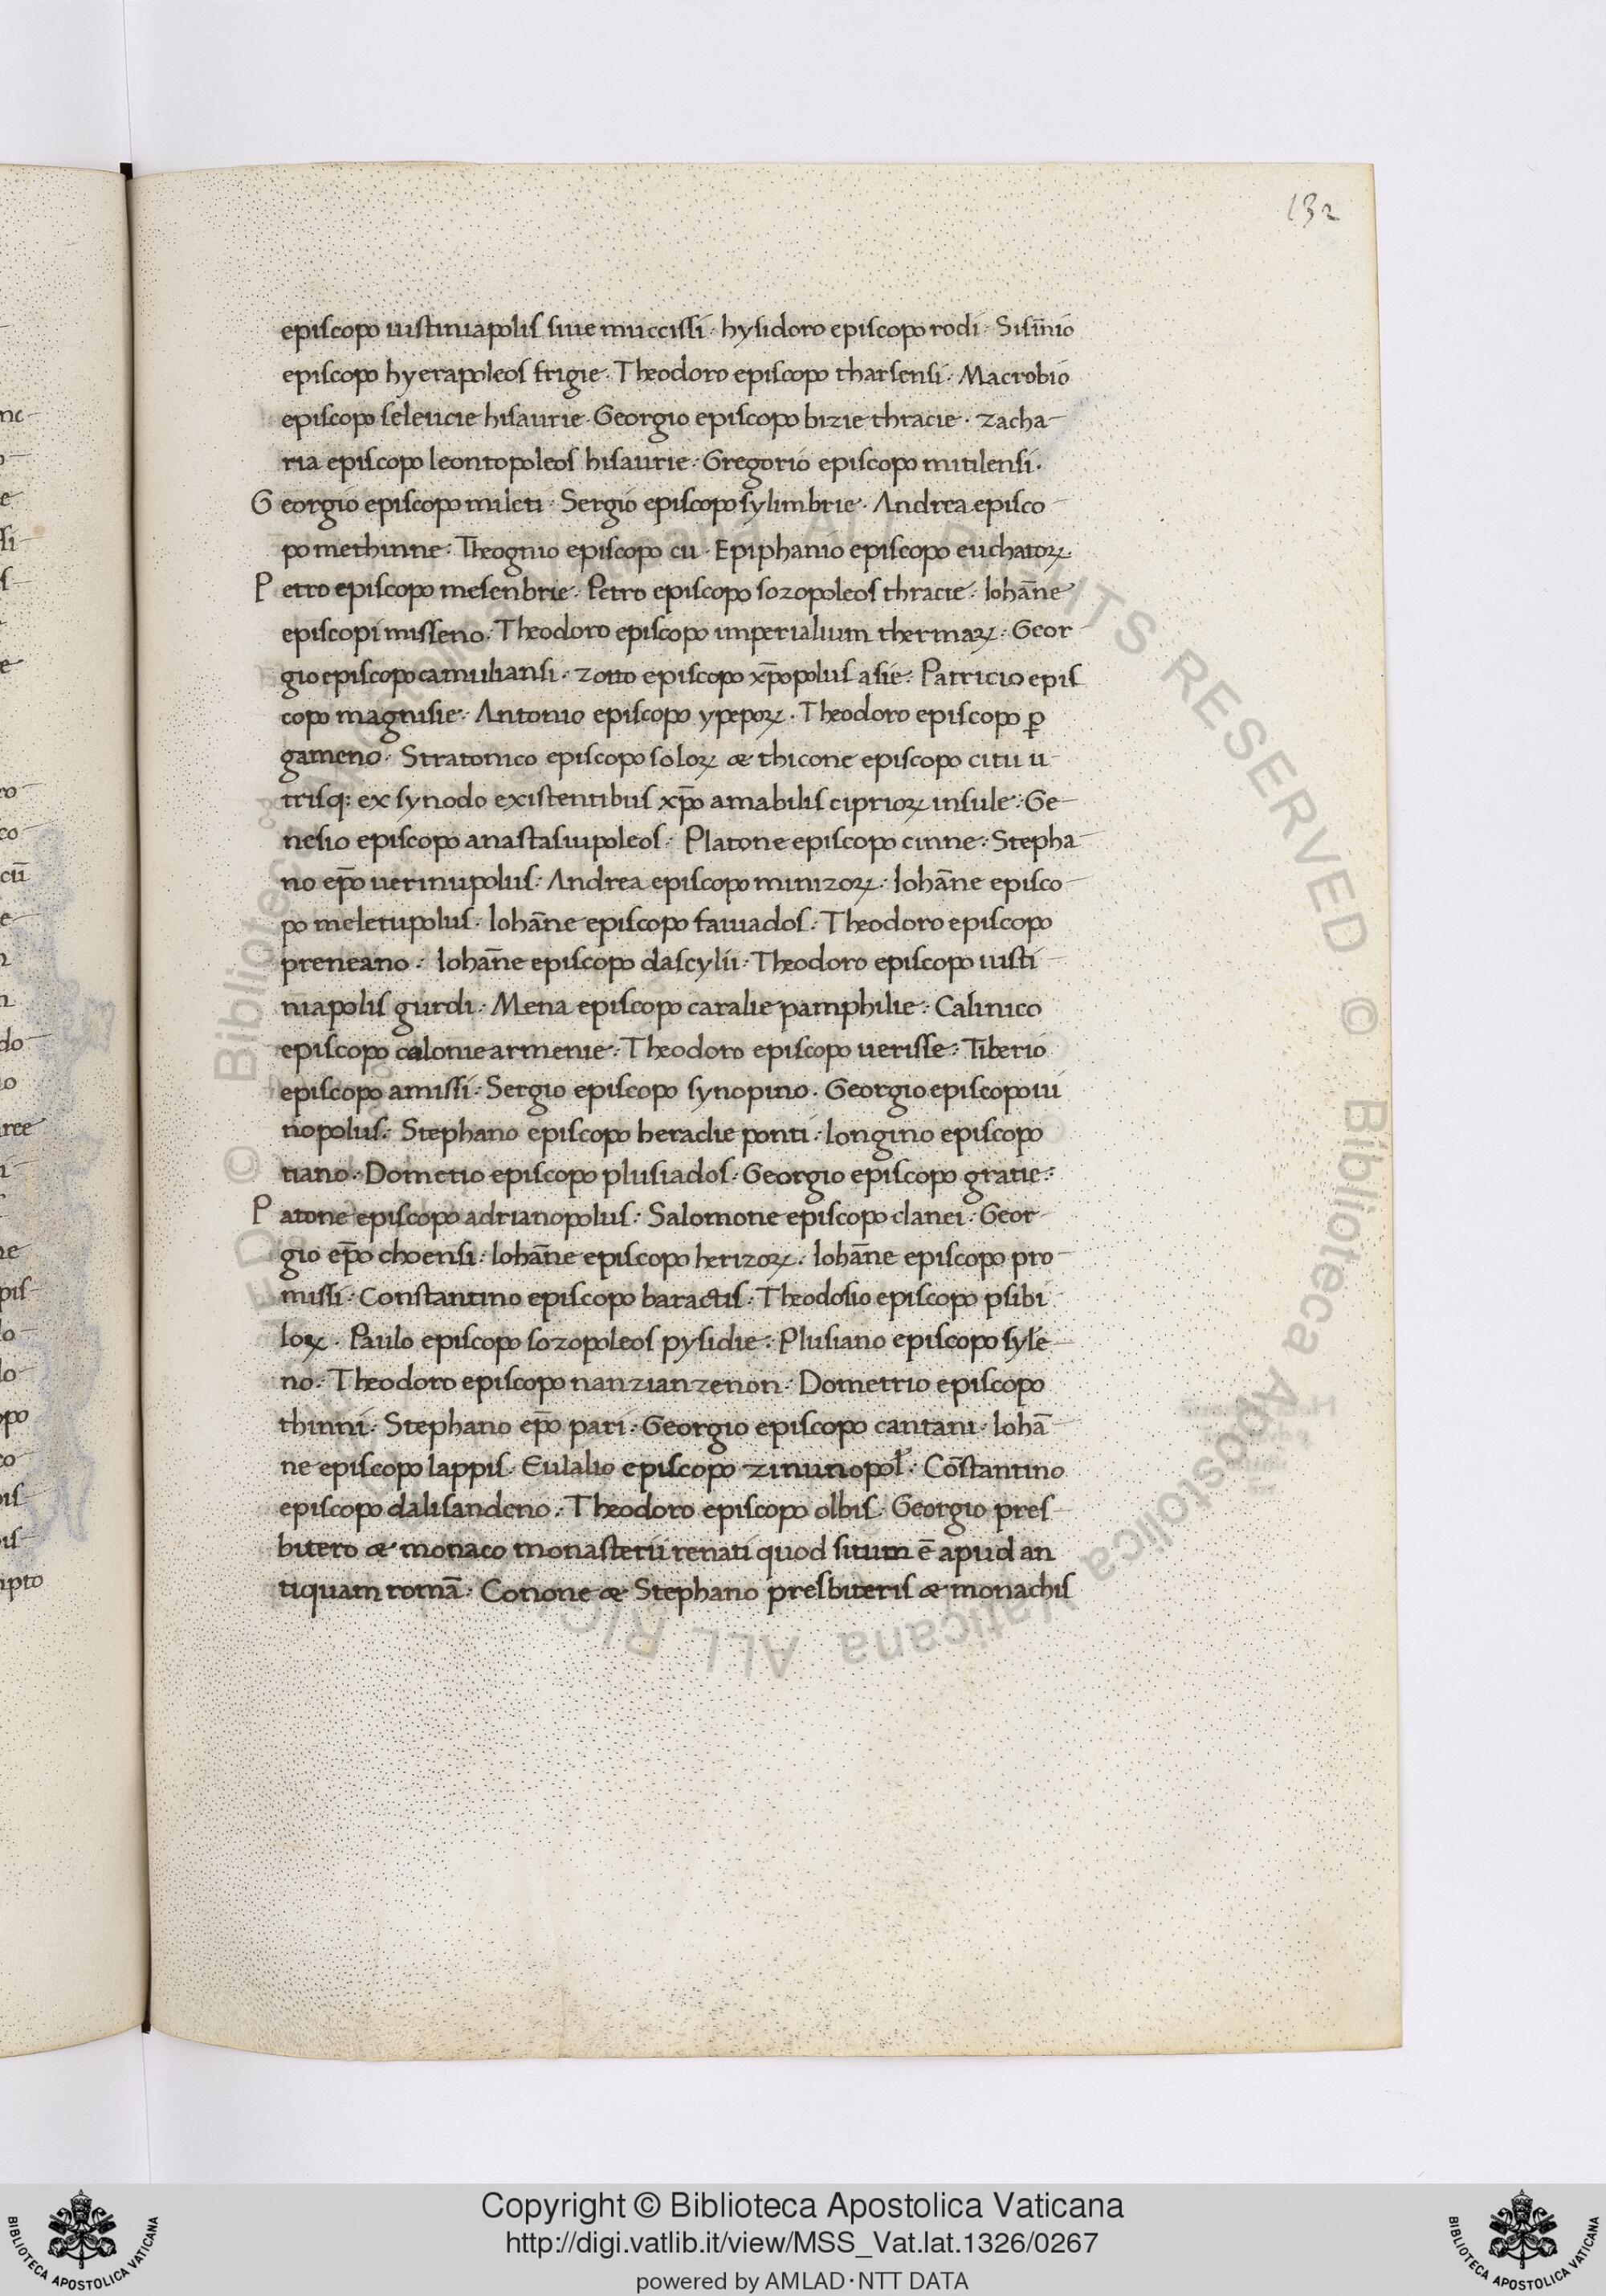 132
episcopo iustiniapolis siue muccissi · hysidoro episcopo rodi · Sisin̄io
episcopo hyerapoleos frigie · Theodoro episcopo tharsensi · Macrobio
episcopo seleucie hisaurie · Georgio episcopo bizie thracie · zacha
ria episcopo leontopoleos hisaurie · Gregorio episcopo mitilensi ·
Georgio episcopo mileti · Sergio episcopo sylimbrie · Andrea episco
po methinne · Theognio episcopo cu · Epiphanio episcopo euchatoꝝ ·
Petro episcopo mesenbrie · Petro episcopo sozopoleos thracie · Iohān̄e
episcopi misseno · Theodoro episcopo imperialium thermaꝝ · Geor
gio episcopo camuliansi · zotto episcopo xp̄opolus asie · Patricio epis
copo magnisie · Antonio episcopo ypepoꝝ · Theodoro episcopo ꝑ
gameno · Stratonico episcopo soloꝝ & thicone episcopo citii u
trisq; ex synodo existentibus xp̄o amabilis ciprioꝝ insule · Ge
nesio episcopo anastasiupoleos · Platone episcopo cinne · Stepha
no ep̄o uerinupolus · Andrea episcopo minizoꝝ · Iohān̄e episco
po meletupolus · Iohān̄e episcopo fauiados · Theodoro episcopo
preneano · Iohān̄e episcopo dascylii · Theodoro episcopo iusti
niapolis gurdi · Mena episcopo caralie pamphilie · Calinico
episcopo calonie armenie · Theodoro episcopo uerisse · Tiberio
episcopo amissi · Sergio episcopo synopino · Georgio episcopo iu
nopolus · Stephano episcopo heraclie ponti · longino episcopo
tiano · Dometio episcopo plusiados · Georgio episcopo gratie ·
Patone episcopo adrianopolus · Salomone episcopo clanei · Geor
gio ep̄o choensi · Iohān̄e episcopo herizoꝝ · Iohān̄e episcopo pro
missi · Constantino episcopo baractis · Theodosio episcopo psibi
loꝝ · Paulo episcopo sozopoleos pysidie · Plusiano episcopo syle
no · Theodoro episcopo nanzianzenon · Dometrio episcopo
thinni · Stephano ep̄o pari · Georgio episcopo cantani · Iohā
ne episcopo lappis · Eulalio episcopo zinunopol̄ · Cōstantino
episcopo dalisandeno · Theodoro episcopo olbis · Georgio pres
bitero & monaco monasterii renati quod situm ē apud an
tiquam romā · Conone & Stephano presbiteris & monachis
Copyright © Biblioteca Apostolica Vaticana
http://digi.vatlib.it/view/MSS_Vat.lat.1326/0267
powered by AMLAD·NTT DATA
BIBLIOTECA APOSTOLICA VATICANA
BIBLIOTECA APOSTOLICA VATICANA